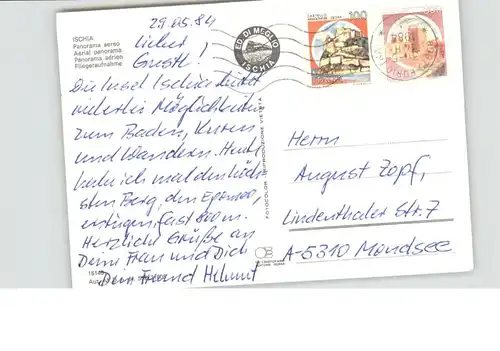 29.05.84
ISCHIA
Panorama aereo
Aerial panorama
Panorama aérien
Fliegeraufnahme
Lieber
Gustl!
Die Insel Ischia bietet
vielerlei Möglichkeiten
zum Baden, Kuren
und Wandern. Heut
habe ich mal den höch-
sten Berg, den Epomeo,
erstiegen, fast 800m.
Herzliche Grüße an
Deine Frau und Dich
Dein Freund Helmut
ED. DI MEGLIO
ISCHIA
FOTOCOLOR RIPRODUZIONE VIETATA
100
Herrn
August Zopf,
Lindenthaler Str. 7
A-5310 Mondsee